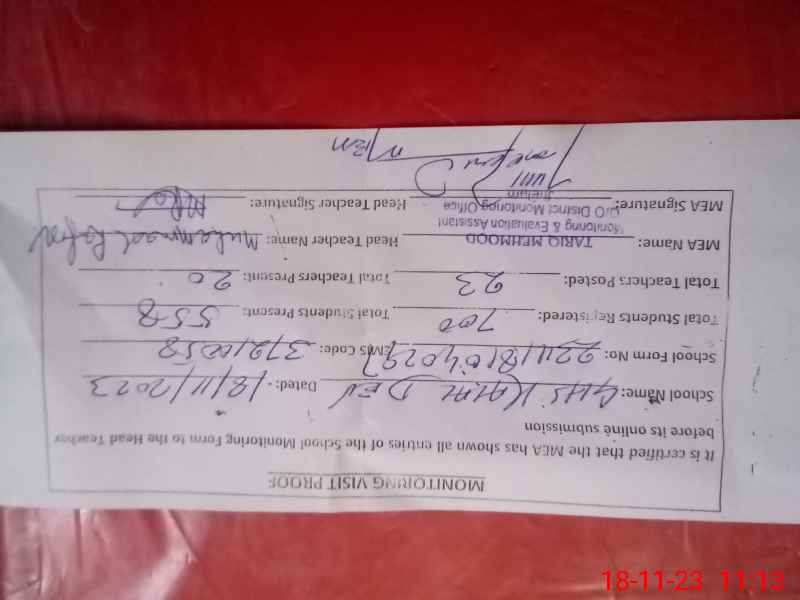 MONITORING VISIT PROOF
It is certified that the MEA has shown all entries of the School Monitoring Form to the Head Teacher
before its online submission
School Name: GHS Dated: 18/11/2023
School Form No: EMIS Code: 37210058
Total Students Registered: 700 Total Students Present: 558
Total Teachers Posted: 23 Total Teachers Present: 20
MEA Name: TARIQ MEHMOOD Head Teacher Name: Muhammad
Monitoring & Evaluation Assistant
O/O District Monitoring Office
Jhelum
MEA Signature: Head Teacher Signature:
18-11-23 11:13